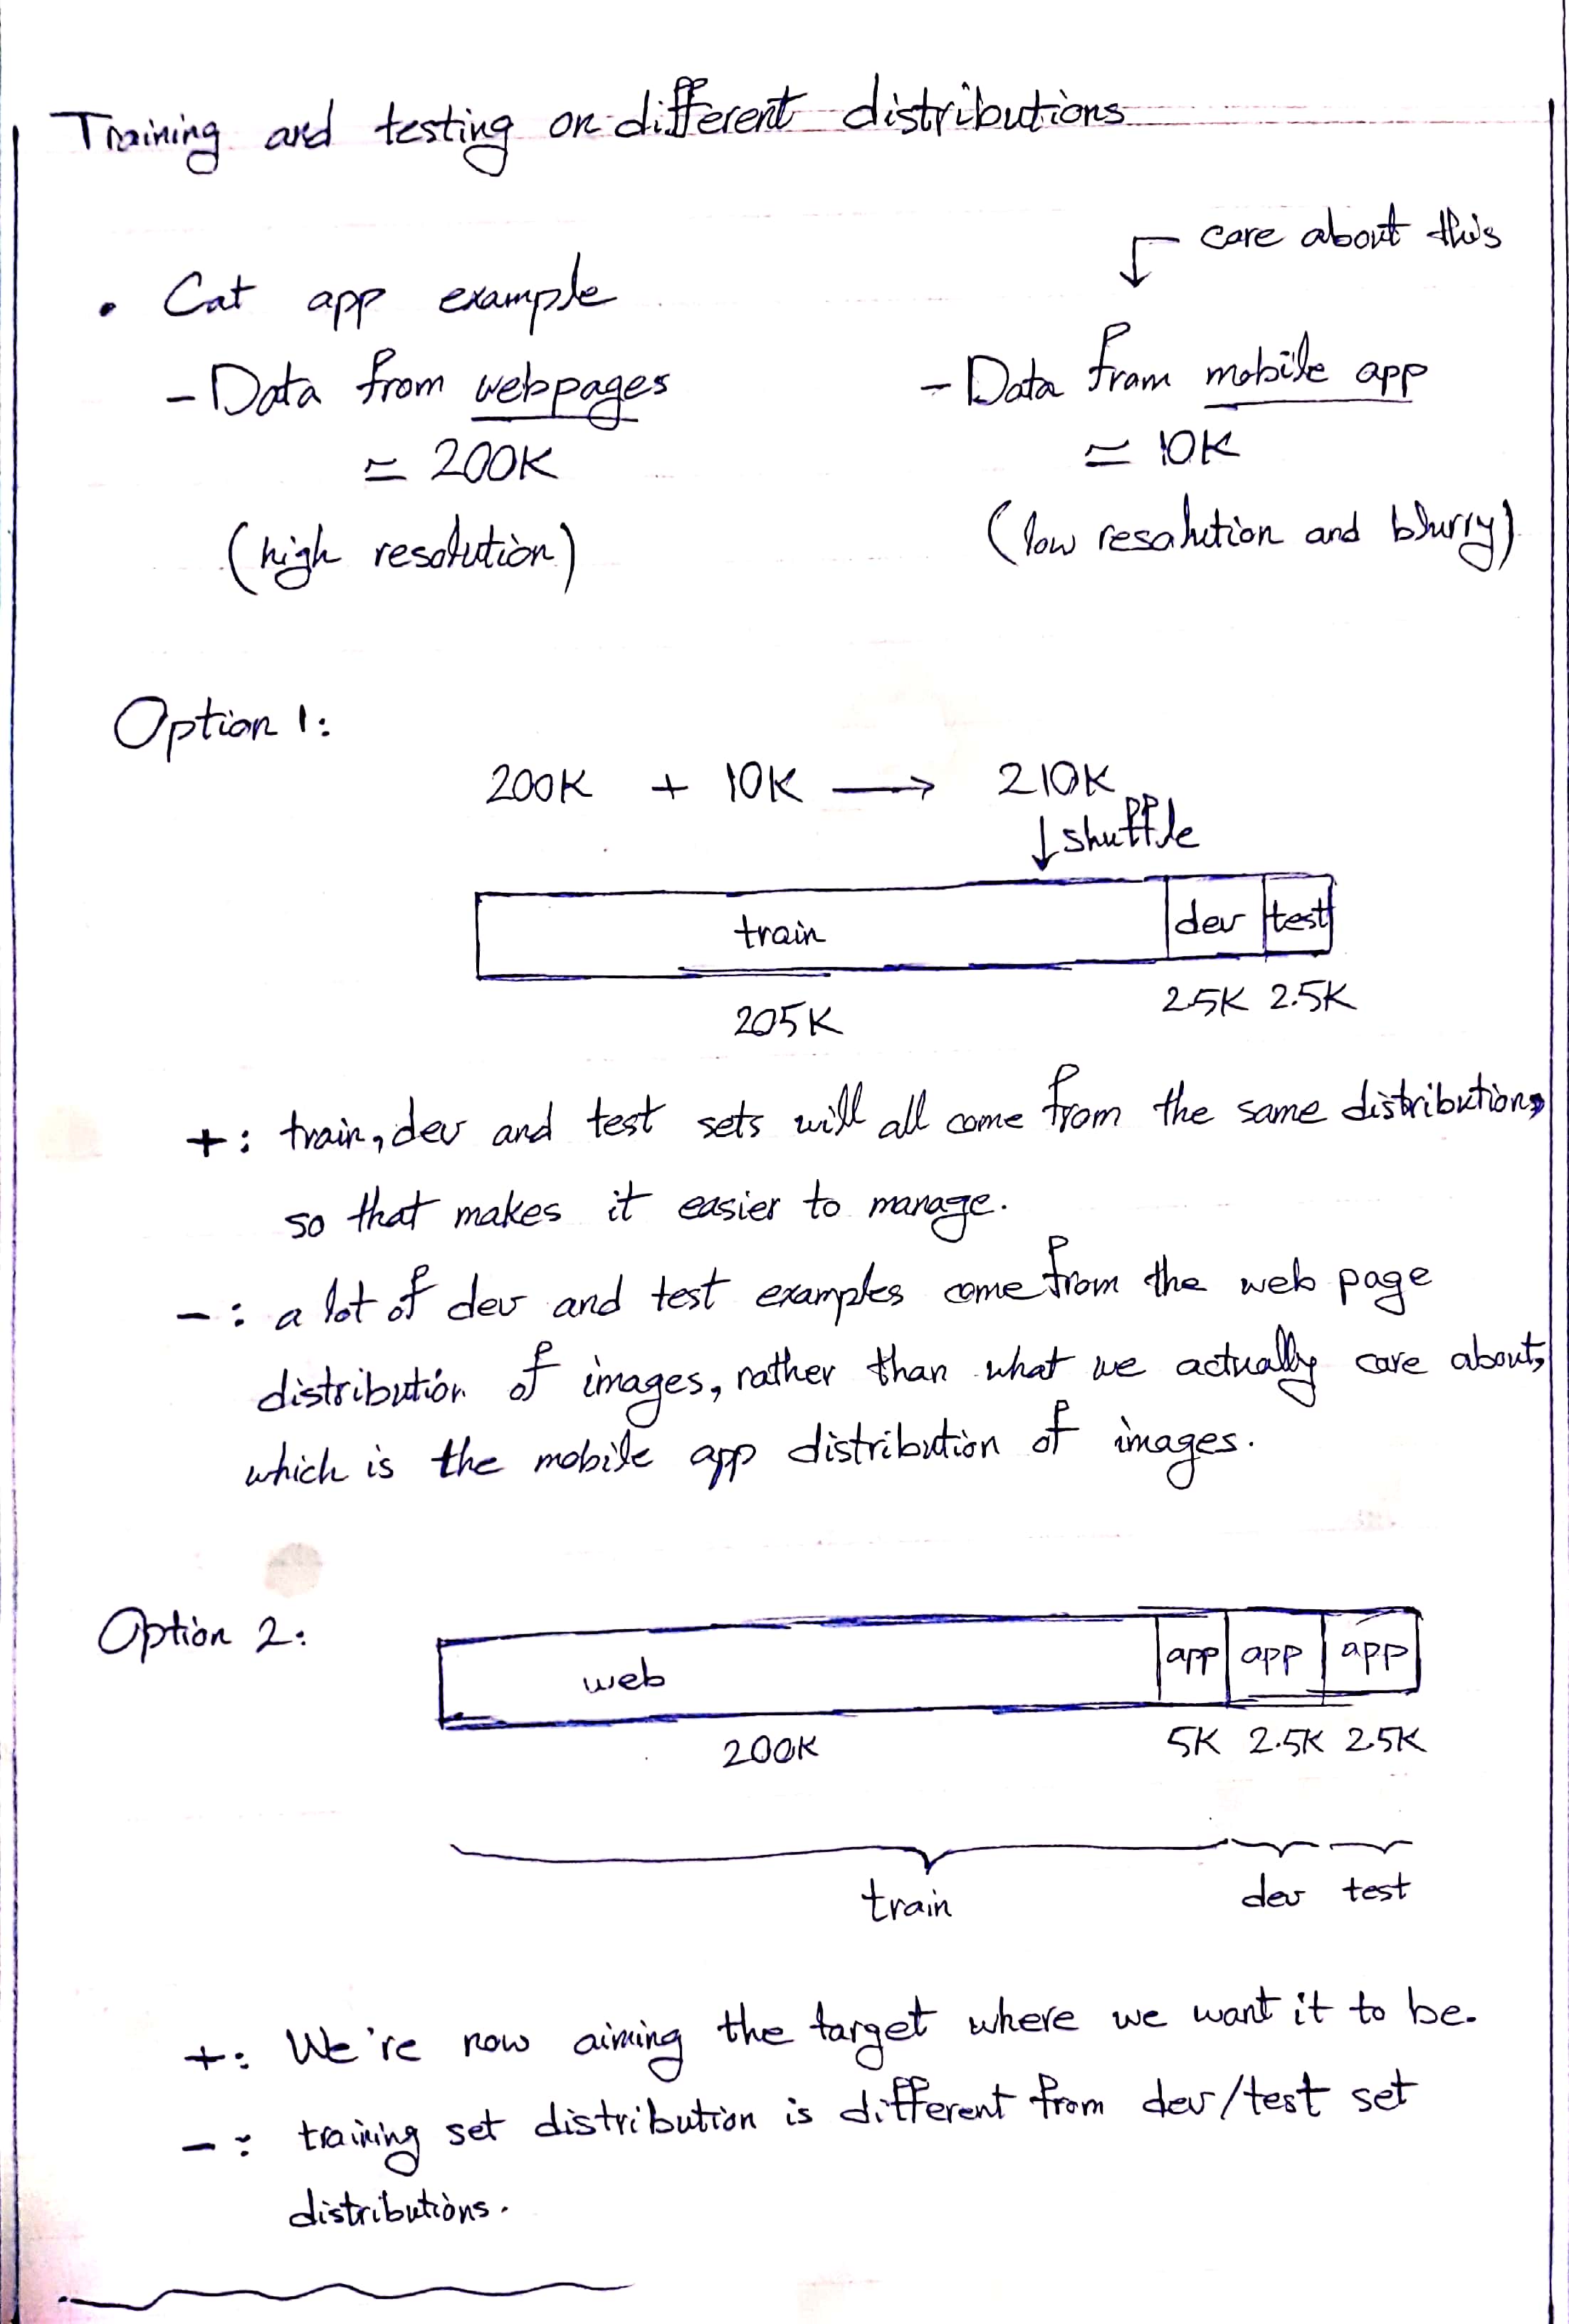 Training and testing on different distributions
care about this
• Cat app example
- Data from webpages
≃ 200K
(high resolution)
- Data from mobile app
≃ 10K
(low resolution and blurry)
Option 1:
200K + 10K → 210K
↓ shuffle
train dev test
205K 2.5K 2.5K
+: train, dev and test sets will all come from the same distribution,
so that makes it easier to manage.
-: a lot of dev and test examples come from the web page
distribution of images, rather than what we actually care about,
which is the mobile app distribution of images.
Option 2:
web app app app
200K 5K 2.5K 2.5K
train dev test
+: We're now aiming the target where we want it to be.
-: training set distribution is different from dev/test set
distributions.